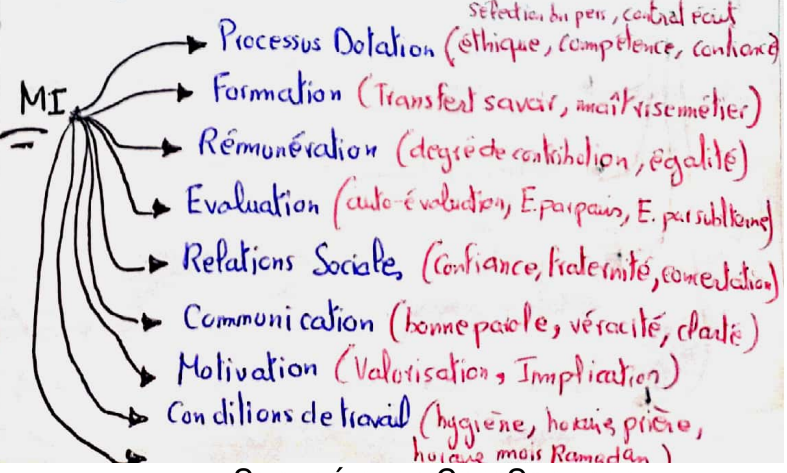 sélection du pers, contrat écrit
MI
Processus Dotation (éthique, compétence, confiance)
Formation (Transfert savoir, maîtrise métier)
Rémunération (degré de contribution, égalité)
Evaluation (auto-évaluation, E. par pairs, E. par subalterne)
Relations Sociale, (confiance, fraternité, concertation)
Communication (bonne parole, véracité, clarté)
Motivation (Valorisation, Implication)
Conditions de travail (hygiène, horaire prière,
horaire mois Ramadan)